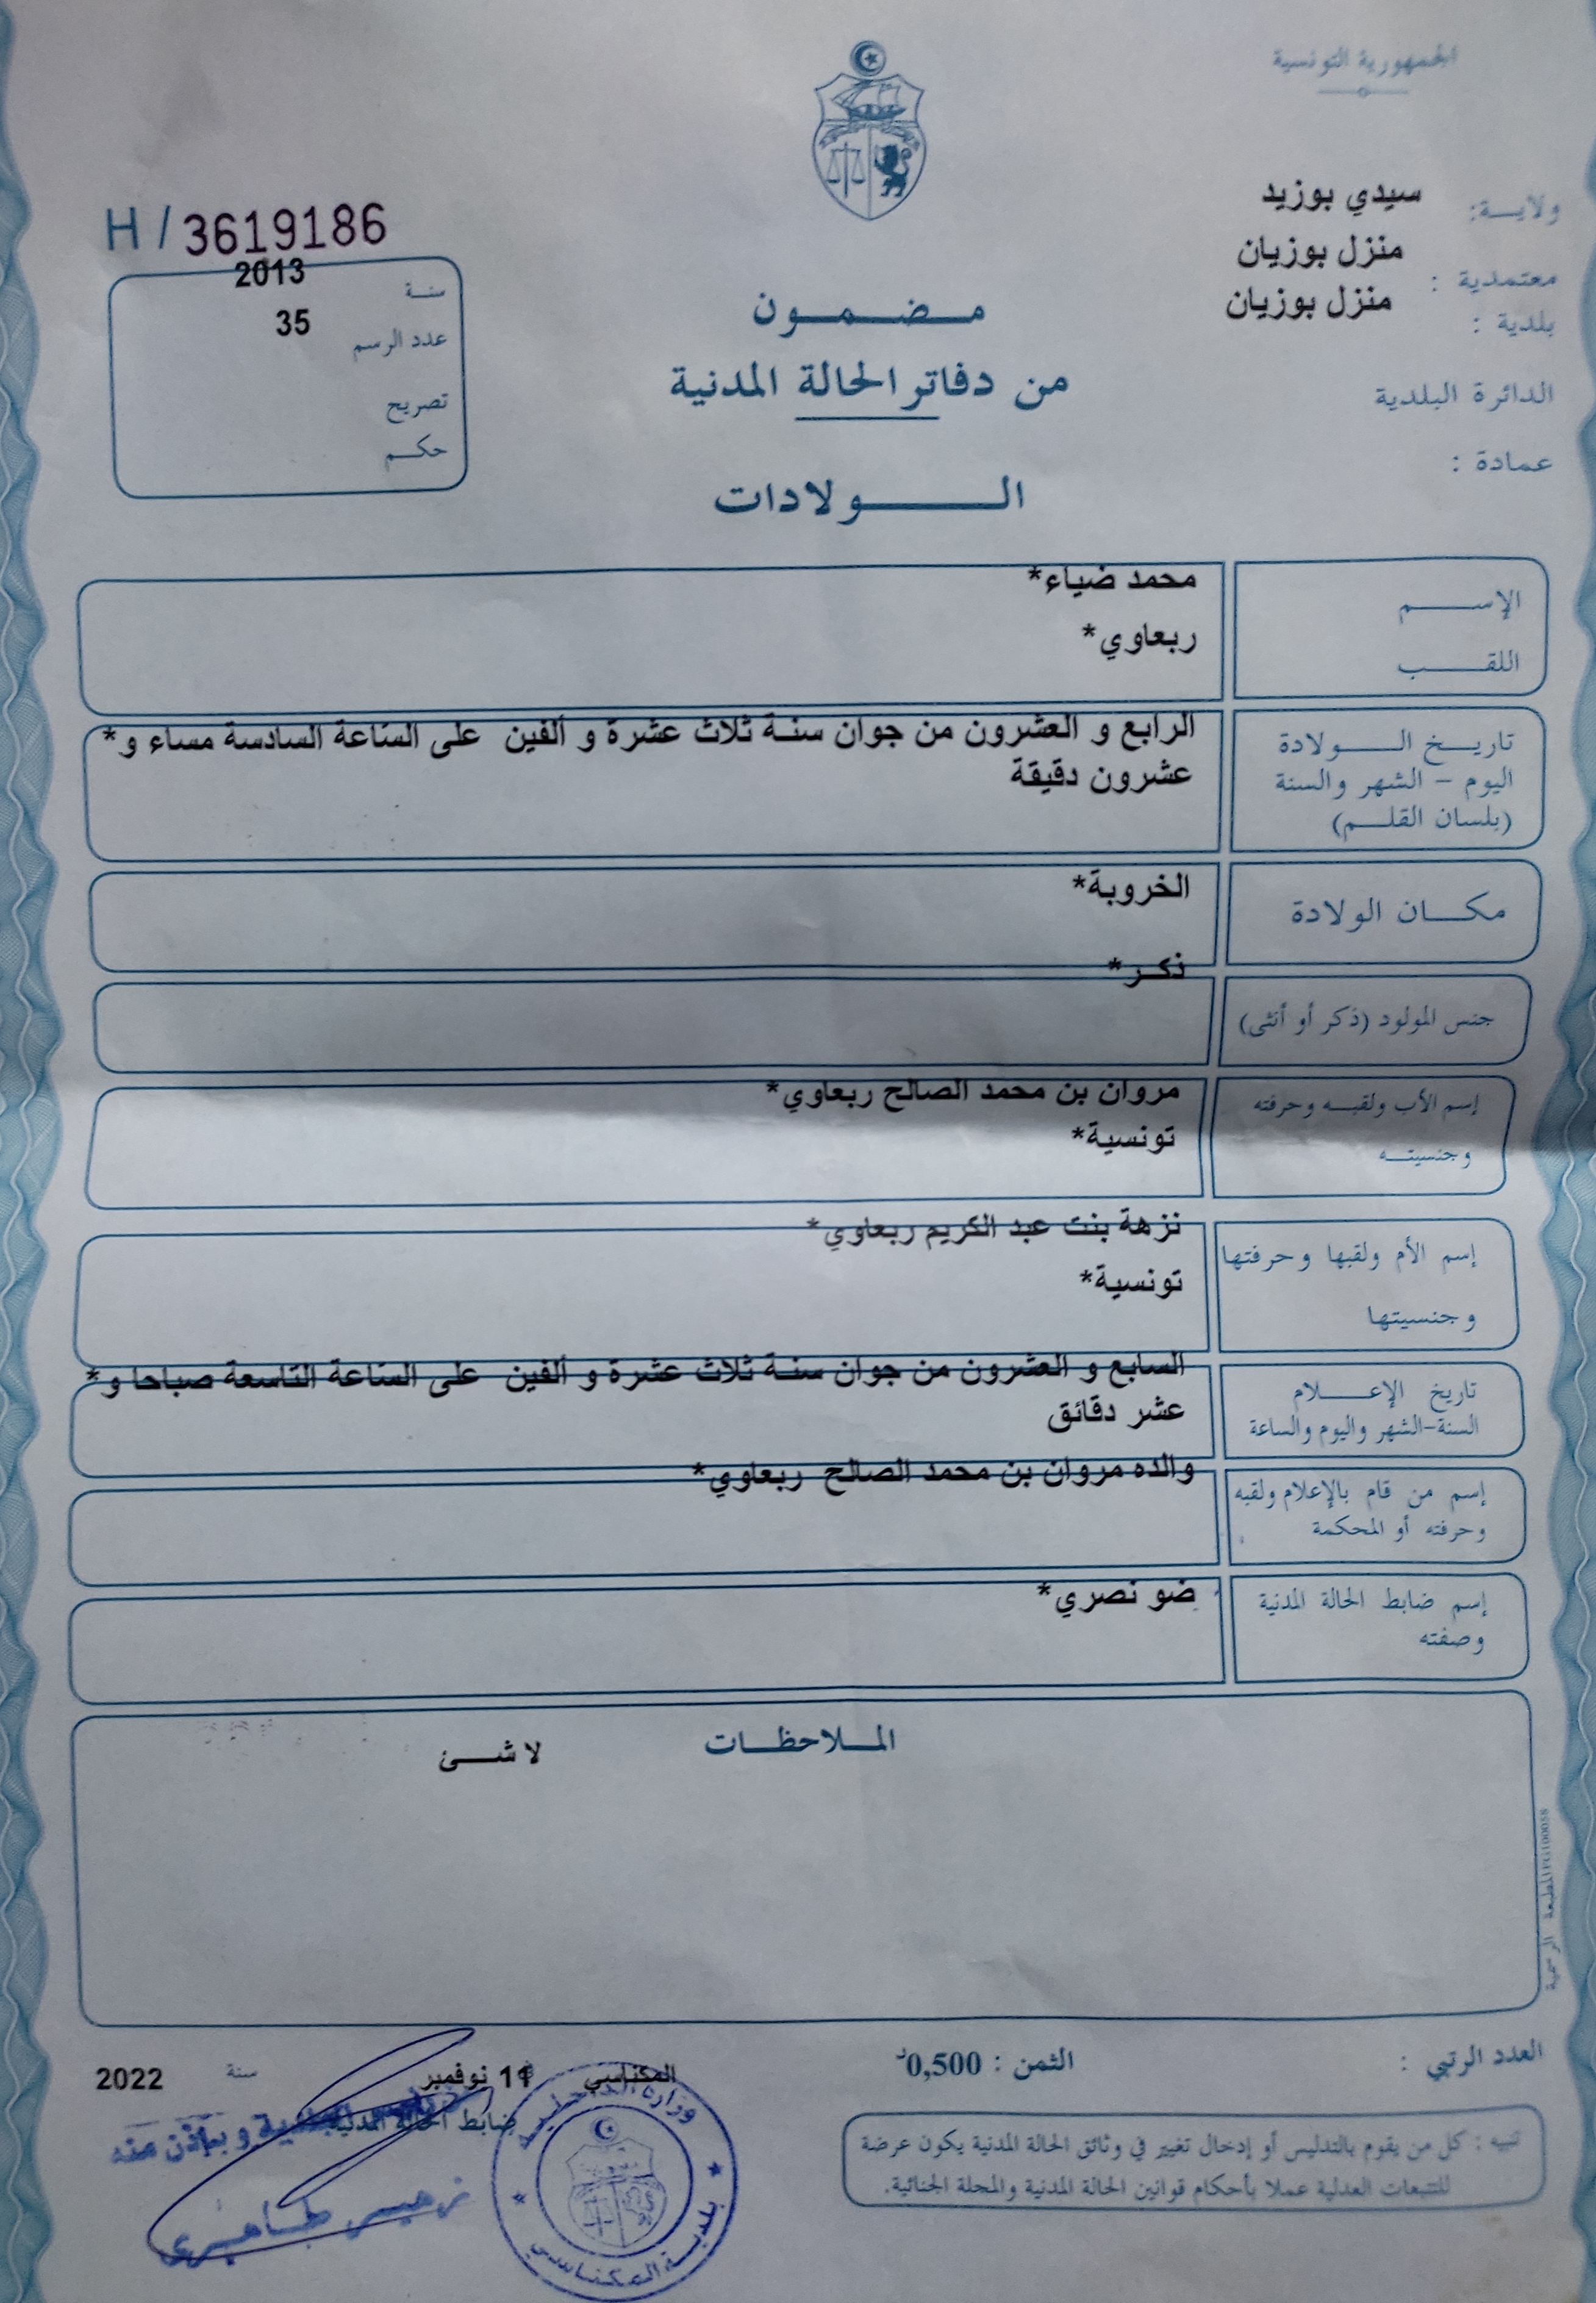 الجمهورية التونسية
ولايـــة: سيدي بوزيد
معتمدية : منزل بوزيان
بلدية : منزل بوزيان
الدائرة البلدية
عمادة :
H / 3619186
سنــة 2013
عدد الرسم 35
تصريح
حكــم
مـــضـــمـــون
من دفاتر الحالة المدنية
الــــولادات
الإســـــم محمد ضياء*
اللقـــــب ربعاوي*
تاريـــخ الـــــولادة
اليوم - الشهر والسنة
(بلسان القلـــم)
الرابع و العشرون من جوان سنة ثلاث عشرة و ألفين على السّاعة السادسة مساء و*
عشرون دقيقة
مكـــان الولادة الخروبة*
جنس المولود (ذكر أو أنثى) ذكــر*
إسم الأب ولقبــه وحرفته مروان بن محمد الصالح ربعاوي*
وجنسيتــه تونسية*
إسم الأم ولقبها وحرفتها نزهة بنت عبد الكريم ربعاوي*
وجنسيتها تونسية*
تاريخ الإعـــــلام
السنة-الشهر واليوم والساعة
السابع و العشرون من جوان سنة ثلاث عشرة و ألفين على السّاعة التاسعة صباحا و*
عشر دقائق
إسم من قام بالإعلام ولقبه
وحرفته أو المحكمة
والده مروان بن محمد الصالح ربعاوي*
إسم ضابط الحالة المدنية
وصفته
ضو نصري*
المـــلاحظـــات
لا شـــئ
المطبعة الرسمية
العدد الرتبي :
الثمن : 0,500د
المكناسي 11 نوفمبر سنة 2022
ضابط الحالة المدنية
وبإذن منه
طاهري
وزارة الداخلية
بلدية المكناسي
تنبيه : كل من يقوم بالتدليس أو إدخال تغيير في وثائق الحالة المدنية يكون عرضة
للتتبعات العدلية عملا بأحكام قوانين الحالة المدنية والمجلة الجنائية.